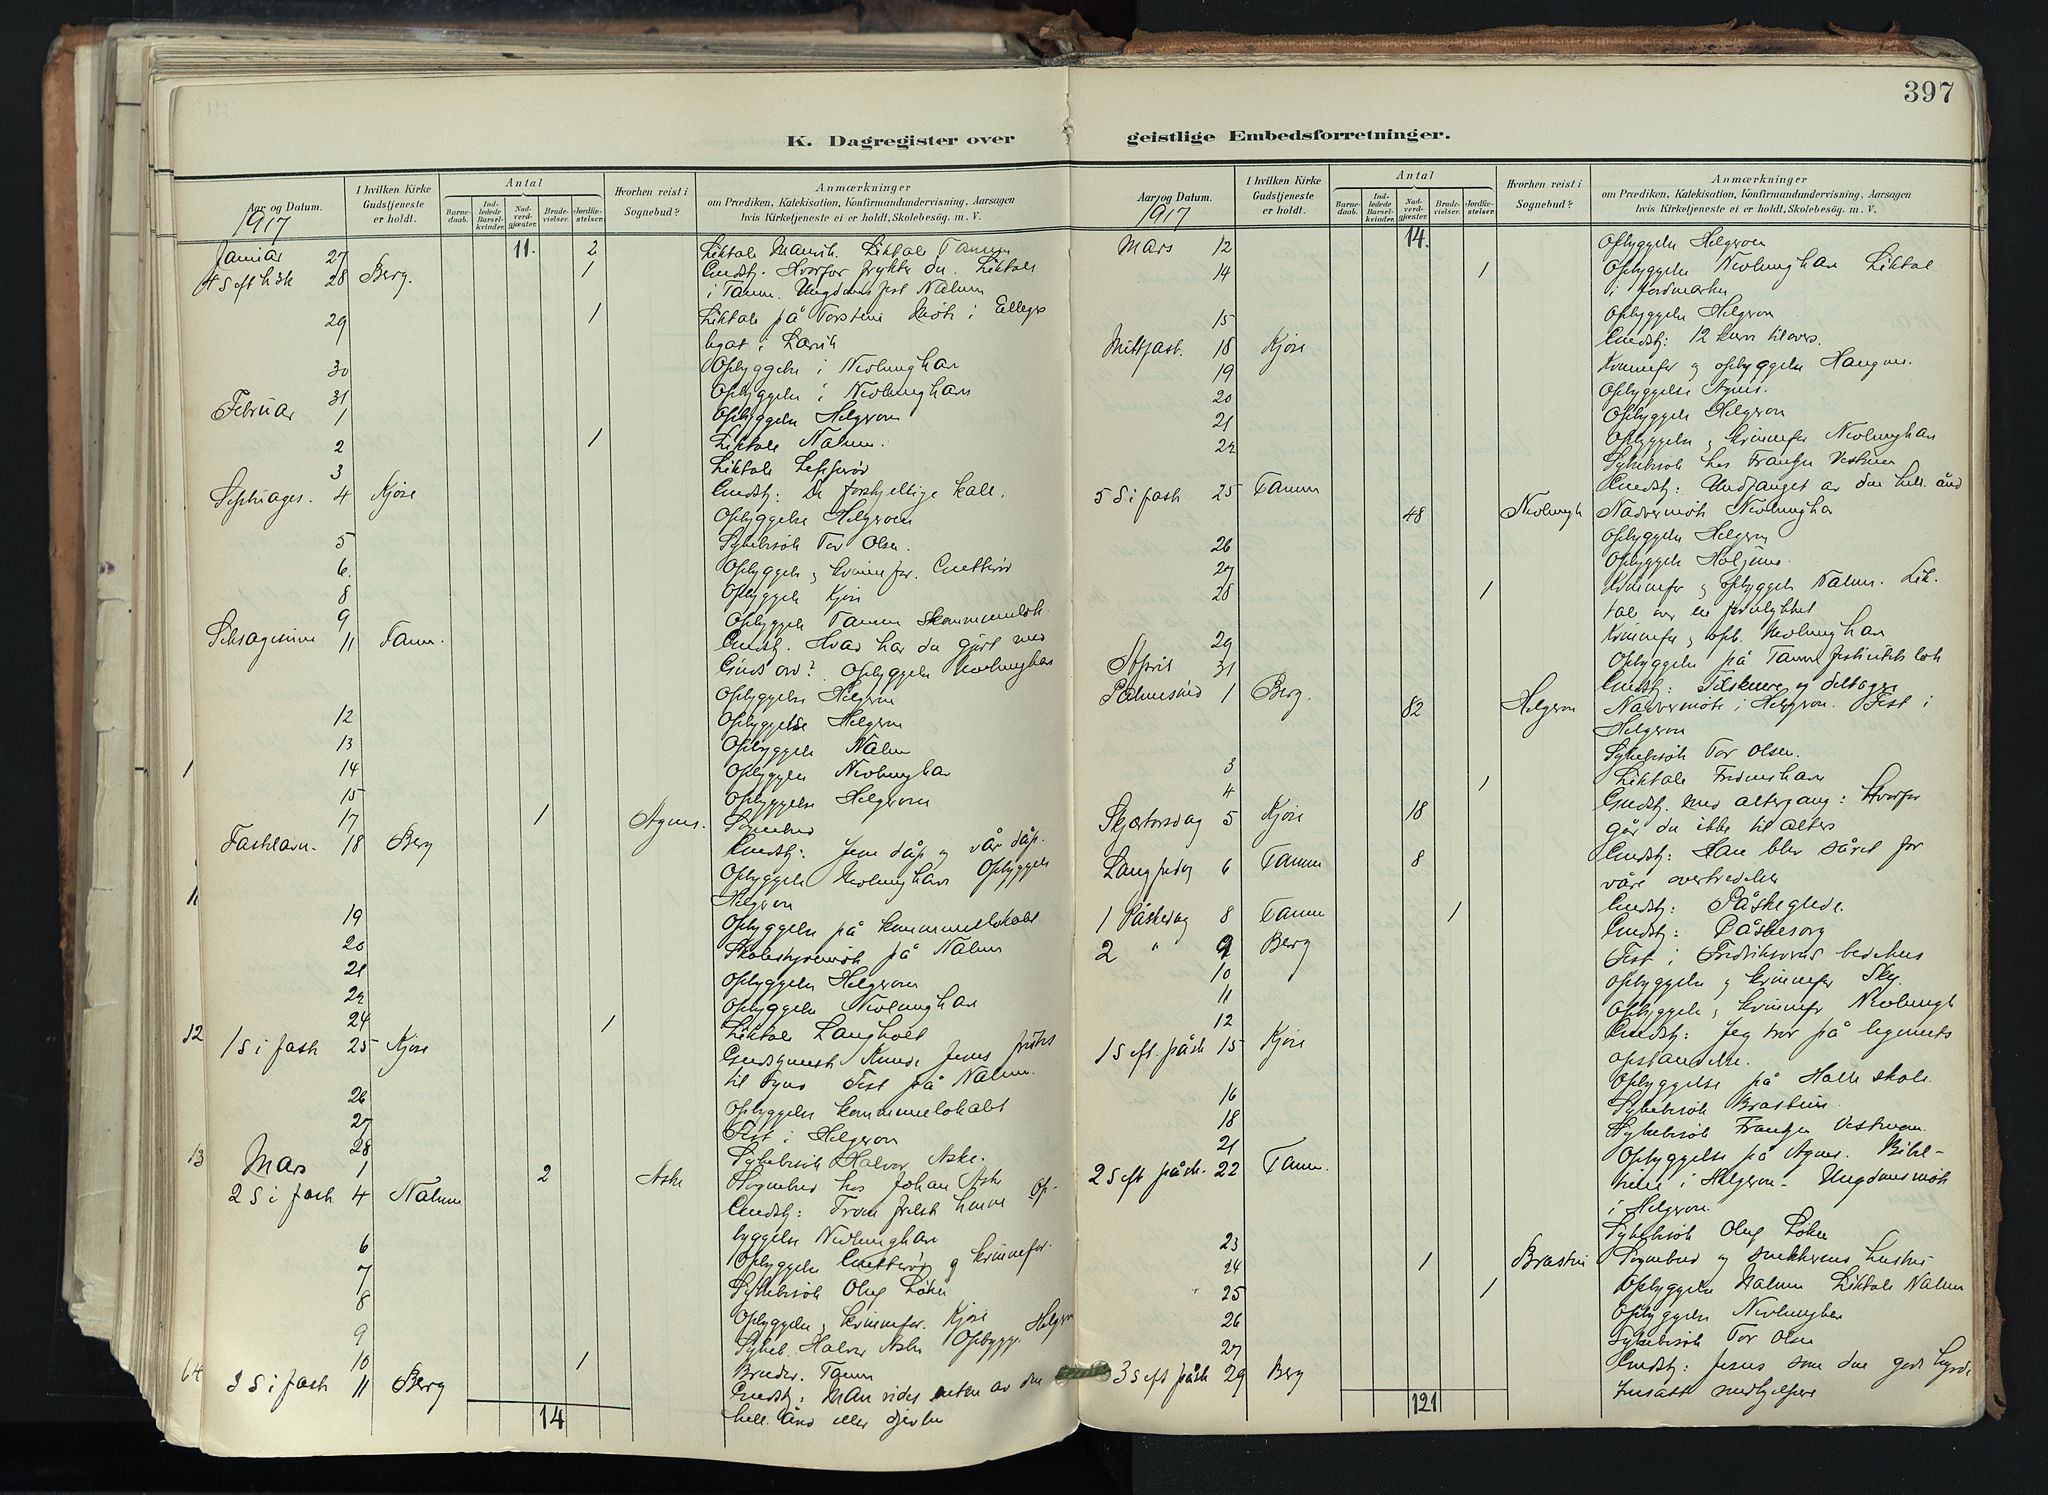 397
K. Dagregister over geistlige Embedsforretninger.
Aar og Datum. I hvilken Kirke Gudstjeneste er holdt. Antal Barnedaab. Indledede Barselkvinder. Nadverdgjæster. Brudevielser. Jordfæstelser. Hvorhen reist i Sognebud? Anmærkninger om Prædiken, Katekisation, Konfirmandundervisning, Aarsagen hvis Kirketjeneste ei er holdt, Skolebesög. m. V.
1917
11. 2
Januar 27 Liktale Liktale Tanum
4 S eft h3k 28 Berg. 1 Gudstj. Hvorfor frykter du. Liktale
i Tanum. Ungdomsfest Nalum
29 1 Liktale på Torstein møte i
legat i Larvik
30 Opbyggelse i Nevlunghavn
31 Opbyggelse i Nevlunghavn
Februar 1 Opbyggelse Helgeroa
2 1 Liktale Nalum.
3 Liktale
Septuages. 4 Kjose Gudstj: De forskjellige kall.
Opbyggelse Helgeroa
5 Sykebesök Tor Olsen.
6. Opbyggelse kvinnefor.
8 Opbyggelse Kjose
9 Opbyggelse Tanum Kommunelok.
Seksagesima 11 Tanum. Gudstj. Hvad har du gjort med
Guds ord? Opbyggelse Nevlunghavn
Opbyggelse Helgeroa
12 Opbyggelse Helgeroa
13 Opbyggelse Nalum
1 14 Opbyggelse Nevlunghavn
15 Opbyggelse Helgeroa
17 1 Agnes. Sognebud
Fastelavn. 18 Berg Gudstj: Jesu dåp og vår dåp.
Opbyggelse Nevlunghavn Opbyggelse
Helgeroa
19 Opbyggelse på kommunelokalet
20 Skolestyremöte på Nalum
21 Opbyggelse Helgeroa
22 Opbyggelse Nevlunghavn
24 1 Liktale Langholt
12 1 S i fast 25 Kjose Gudstjenest Kunde Jesus fristes
til synd Fest på Nalum.
26 Opbyggelse kommunelokalet
27 Fest i Helgeroa
13 28 Sykebesök Halvor Aske.
Mars 1 2 Aske Sognebud hos Johan Aske
2 S i fast 4 Nalum Gudstj: Troen frelst henne Op-
byggelse Nevlunghavn
6 Opbyggelse og kvinnefor.
7 Sykebesök Oluf Löken
8 Opbyggelse, kvinnefor. Kjose
9 Sykeb. Halvor Aske Opbygg. Helgeroa
10 1 Tanum
64 3 S i fast 11 Berg Gudstj: Man rides enten av den
hell. ånd eller djevlen
14
Aar og Datum. I hvilken Kirke Gudstjeneste er holdt. Antal Barnedaab. Indledede Barselkvinder. Nadverdgjæster. Brudevielser. Jordfæstelser. Hvorhen reist i Sognebud? Anmærkninger om Prædiken, Katekisation, Konfirmandundervisning, Aarsagen hvis Kirketjeneste ei er holdt, Skolebesög. m. V.
1917
14.
Mars 12 Opbyggelse Helgeroa
14 1 Opbyggelse Nevlunghavn Liktal
i Jordmarka
15 Opbyggelse Helgeroa
Mittfast. 18 Kjose Gudstj: 12 kurve tilovers.
19 Kvinnefor og opbyggelse
20 Opbyggelse Agnes.
21 Opbyggelse Helgeroa
22 Opbyggelse, kvinnefor Nevlunghavn
Sykebesök hos Vestrum
5 S i fast 25 Tanum Gudstj: Undfanget av den hell. ånd
48 Nevlungh Nadvermöte Nevlunghavn
26 Opbyggelse Helgeroa
27 Opbyggelse
28 1 Kvinnefor og opbyggelse Nalum. Lik-
tal over en forulykket
29 Kvinnefor og opb. Nevlunghavn
31 Opbyggelse på Tanum lok
April
Palmesönd 1 Berg. Gudstj: Tilskuere og deltagere
82 Helgeroa Nadvermöte i Helgeroa. Fest i
Helgeroa
3 Sykebesök Tor Olsen.
4 1 Liktale
Skjærtorsdag 5 Kjose 18 Gudstj. med altergang: Hvorfor
går du ikke til alters
Langfredag 6 Tanum 8 Gudstj: Han blev såret for
våre overtredelser
1 Påskedag 8 Tanum 1 Gudstj: Påskeglede.
2 " 9 Berg Gudstj: Påskesorg
10 Fest i Fredriksvern bedehus
11 Opbyggelse og kvinnefor Sky.
12 Opbyggelse, kvinnefor Nevlungh
1 S eft. påsk 15 Kjose Gudstj: Jeg tror på legemets
opstandelse.
16 Opbyggelse på Halle skole.
18 Sykebesök
21 Sykebesök Vestrum.
2 S eft påsk. 22 Tanum. Opbyggelse på Agnes. Bibel-
time i Helgeroa. Ungdomsmöte
i Helgeroa.
23 Sykebesök Oluf Löken
24 1 Sognebud og snekkerens hustru
25 1 Opbyggelse Nalum Liktale Nalum
26 Opbyggelse Nevlunghavn
27 Sykebesök Tor Olsen
3 S eft påsk 29 Berg Gudstj: Jesus som den gode hyrde
innsatt medhjelpere
121